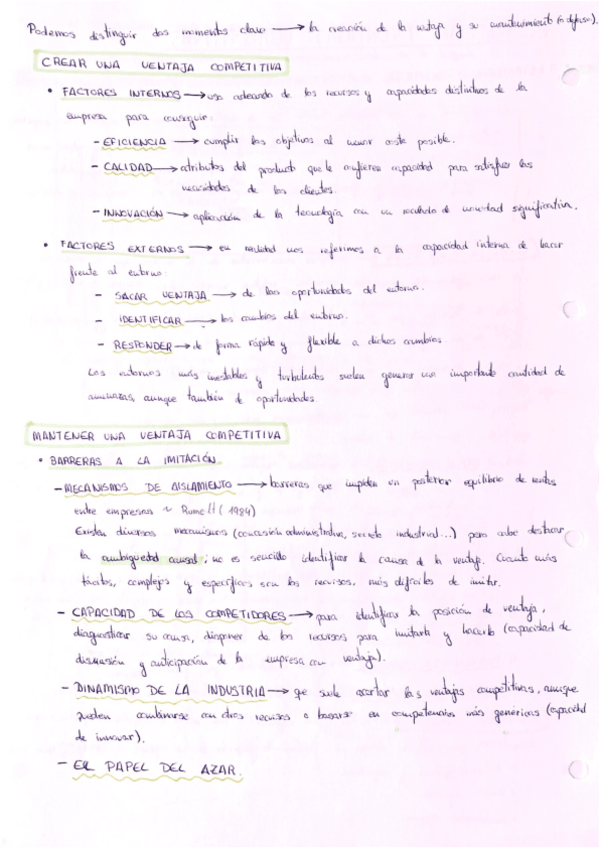 Podemos distinguir dos momentos clave → la creación de la ventaja y su mantenimiento (o defensa).
CREAR UNA VENTAJA COMPETITIVA
• FACTORES INTERNOS → uso adecuado de los recursos y capacidades distintivos de la
empresa para conseguir:
- EFICIENCIA → cumplir los objetivos al menor coste posible.
- CALIDAD → atributos del producto que le confieren capacidad para satisfacer las
necesidades de los clientes.
- INNOVACIÓN → aplicación de la tecnología con un resultado de novedad significativa.
• FACTORES EXTERNOS → en realidad nos referimos a la capacidad interna de hacer
frente al entorno
- SACAR VENTAJA → de las oportunidades del entorno.
- IDENTIFICAR → los cambios del entorno.
- RESPONDER → de forma rápida y flexible a dichos cambios.
Los entornos más inestables y turbulentos suelen generar una importante cantidad de
amenazas, aunque también de oportunidades
MANTENER UNA VENTAJA COMPETITIVA
• BARRERAS A LA IMITACIÓN
- MECANISMOS DE AISLAMIENTO → barreras que impiden un posterior equilibrio de rentas
entre empresas ~ Rumelt (1984)
Existen diversos mecanismos (concesión administrativa, secreto industrial...) pero cabe destacar
la ambigüedad causal; no es sencillo identificar la causa de la ventaja. Cuanto más
tácitos, complejos y específicos son los recursos, más difíciles de imitar.
- CAPACIDAD DE LOS COMPETIDORES → para identificar la posición de ventaja,
diagnosticar su causa, disponer de los recursos para imitarla y hacerlo (capacidad de
disuasión y anticipación de la empresa con ventaja).
- DINAMISMO DE LA INDUSTRIA → que suele acortar las ventajas competitivas, aunque
pueden combinarse con otros recursos o basarse en competencias más genéricas (capacidad
de innovar).
- EL PAPEL DEL AZAR.